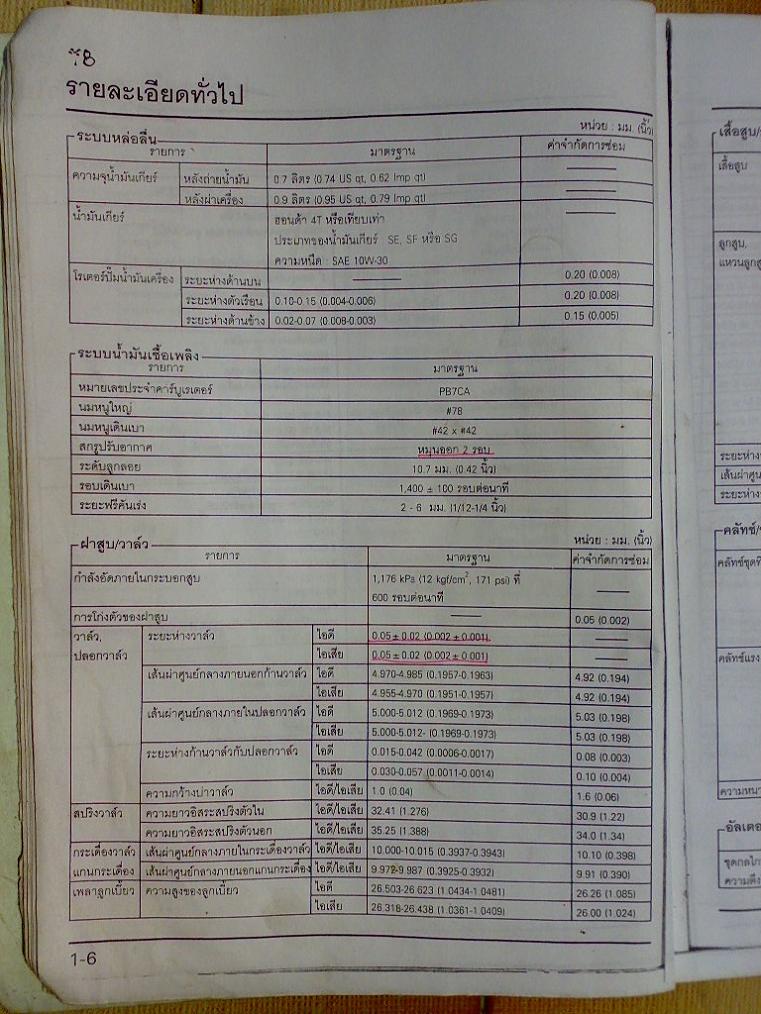 รายละเอียดทั่วไป
หน่วย : มม. (นิ้ว)
ระบบหล่อลื่น
รายการ มาตรฐาน ค่าจำกัดการซ่อม
ความจุน้ำมันเกียร์ หลังถ่ายน้ำมัน 0.7 ลิตร (0.74 US qt, 0.62 Imp qt)
หลังผ่าเครื่อง 0.9 ลิตร (0.95 US qt, 0.79 Imp qt)
น้ำมันเกียร์ ฮอนด้า 4T หรือเทียบเท่า
ประเภทของน้ำมันเกียร์ : SE, SF หรือ SG
ความหนืด : SAE 10W-30
โรเตอร์ปั๊มน้ำมันเครื่อง ระยะห่างด้านบน 0.20 (0.008)
ระยะห่างตัวเรือน 0.10-0.15 (0.004-0.006) 0.20 (0.008)
ระยะห่างด้านข้าง 0.02-0.07 (0.008-0.003) 0.15 (0.005)
ระบบน้ำมันเชื้อเพลิง
รายการ มาตรฐาน
หมายเลขประจำคาร์บูเรเตอร์ PB7CA
นมหนูใหญ่ #78
นมหนูเดินเบา #42 x #42
สกรูปรับอากาศ หมุนออก 2 รอบ
ระดับลูกลอย 10.7 มม. (0.42 นิ้ว)
รอบเดินเบา 1,400 ± 100 รอบต่อนาที
ระยะฟรีคันเร่ง 2 - 6 มม. (1/12-1/4 นิ้ว)
ฝาสูบ/วาล์ว
หน่วย : มม. (นิ้ว)
รายการ มาตรฐาน ค่าจำกัดการซ่อม
กำลังอัดภายในกระบอกสูบ 1,176 kPa (12 kgf/cm², 171 psi) ที่
600 รอบต่อนาที
การโก่งตัวของฝาสูบ 0.05 (0.002)
วาล์ว, ระยะห่างวาล์ว ไอดี 0.05 ± 0.02 (0.002 ± 0.001)
ปลอกวาล์ว ไอเสีย 0.05 ± 0.02 (0.002 ± 0.001)
เส้นผ่าศูนย์กลางภายนอกก้านวาล์ว ไอดี 4.970-4.985 (0.1957-0.1963) 4.92 (0.194)
ไอเสีย 4.955-4.970 (0.1951-0.1957) 4.92 (0.194)
เส้นผ่าศูนย์กลางภายในปลอกวาล์ว ไอดี 5.000-5.012 (0.1969-0.1973) 5.03 (0.198)
ไอเสีย 5.000-5.012- (0.1969-0.1973) 5.03 (0.198)
ระยะห่างก้านวาล์วกับปลอกวาล์ว ไอดี 0.015-0.042 (0.0006-0.0017) 0.08 (0.003)
ไอเสีย 0.030-0.057 (0.0011-0.0014) 0.10 (0.004)
ความกว้างบ่าวาล์ว ไอดี/ไอเสีย 1.0 (0.04) 1.6 (0.06)
สปริงวาล์ว ความยาวอิสระสปริงตัวใน ไอดี/ไอเสีย 32.41 (1.276) 30.9 (1.22)
ความยาวอิสระสปริงตัวนอก ไอดี/ไอเสีย 35.25 (1.388) 34.0 (1.34)
กระเดื่องวาล์ว เส้นผ่าศูนย์กลางภายในกระเดื่องวาล์ว ไอดี/ไอเสีย 10.000-10.015 (0.3937-0.3943) 10.10 (0.398)
แกนกระเดื่อง เส้นผ่าศูนย์กลางภายนอกแกนกระเดื่อง ไอดี/ไอเสีย 9.972-9.987 (0.3925-0.3932) 9.91 (0.390)
เพลาลูกเบี้ยว ความสูงของลูกเบี้ยว ไอดี 26.503-26.623 (1.0434-1.0481) 26.26 (1.085)
ไอเสีย 26.318-26.438 (1.0361-1.0409) 26.00 (1.024)
1-6
เสื้อสูบ/
เสื้อสูบ
ลูกสูบ,
แหวนลูก
ระยะห่าง
เส้นผ่าศูน
ระยะห่าง
คลัทช์/
คลัทช์ชุดที่
คลัทช์แรง
ความหนา
อัลเตอ
ชุดกลไก
ความตึง